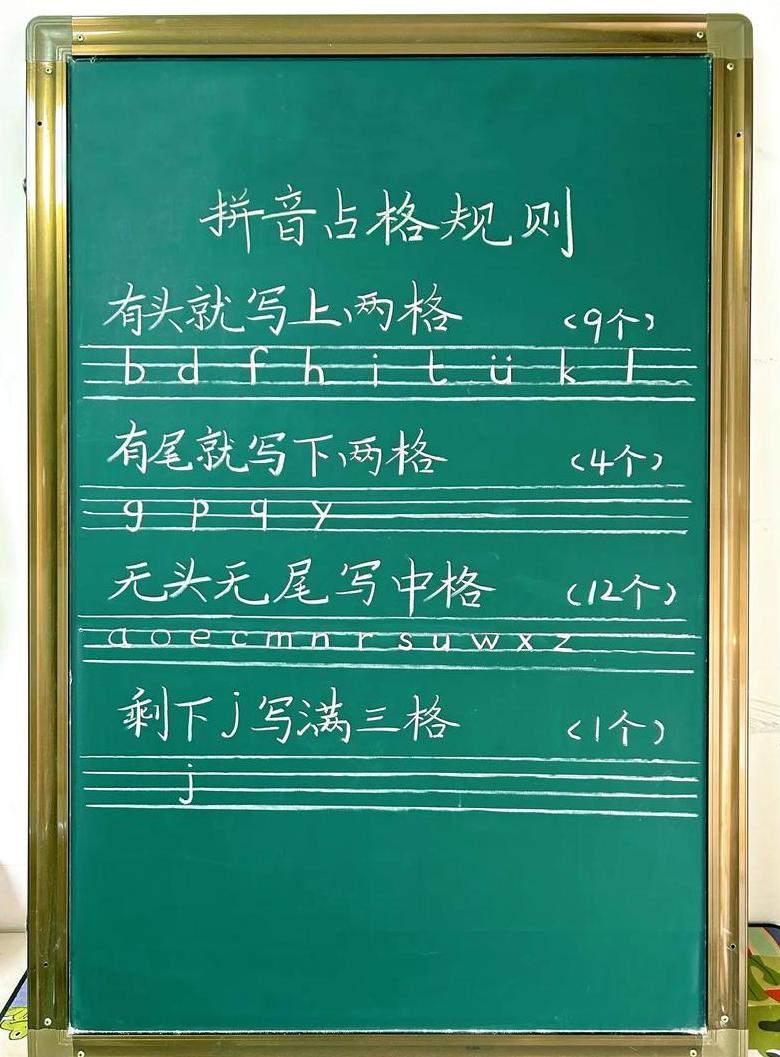 拼音占格规则
有头就写上两格 （9个）
b d f h i t ü k l
有尾就写下两格 （4个）
g p q y
无头无尾写中格 （12个）
a o e c m n r s u w x z
剩下j写满三格 （1个）
j